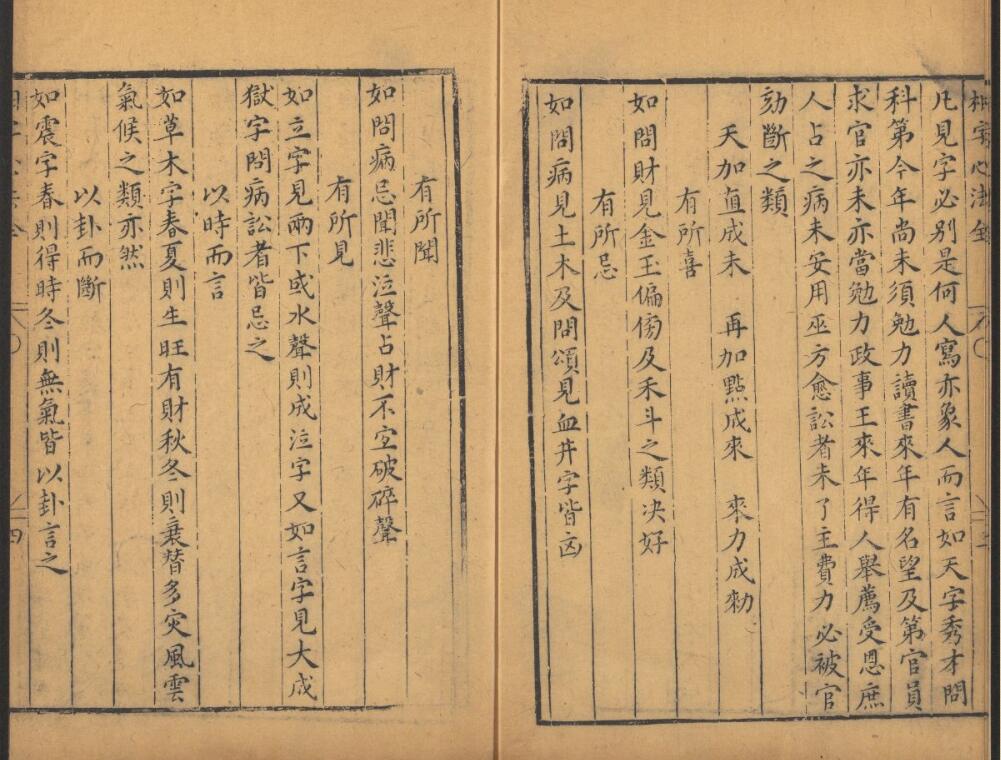 相字心法
凡見字必別是何人寫亦象人而言如天字秀才問
科第今年尚未須勉力讀書來年有名望及第官員
求官亦未亦當勉力政事王來年得人舉薦受恩庶
人占之病未安用巫方愈訟者未了主費力必被官
劾斷之類
天加直成未 再加點成來 來力成勑
有所喜
如問財見金玉偏傍及禾斗之類决好
有所忌
如問病見土木及問頌見血井字皆凶
有所聞
如問病忌聞悲泣聲占財不宜破碎聲
有所見
如立字見雨下或水聲則成泣字又如言字見犬成
獄字問病訟者皆忌之
以時而言
如草木字春夏則生旺有財秋冬則衰替多灾風雲
氣候之類亦然
以卦而斷
如震字春則得時冬則無氣皆以卦言之
四